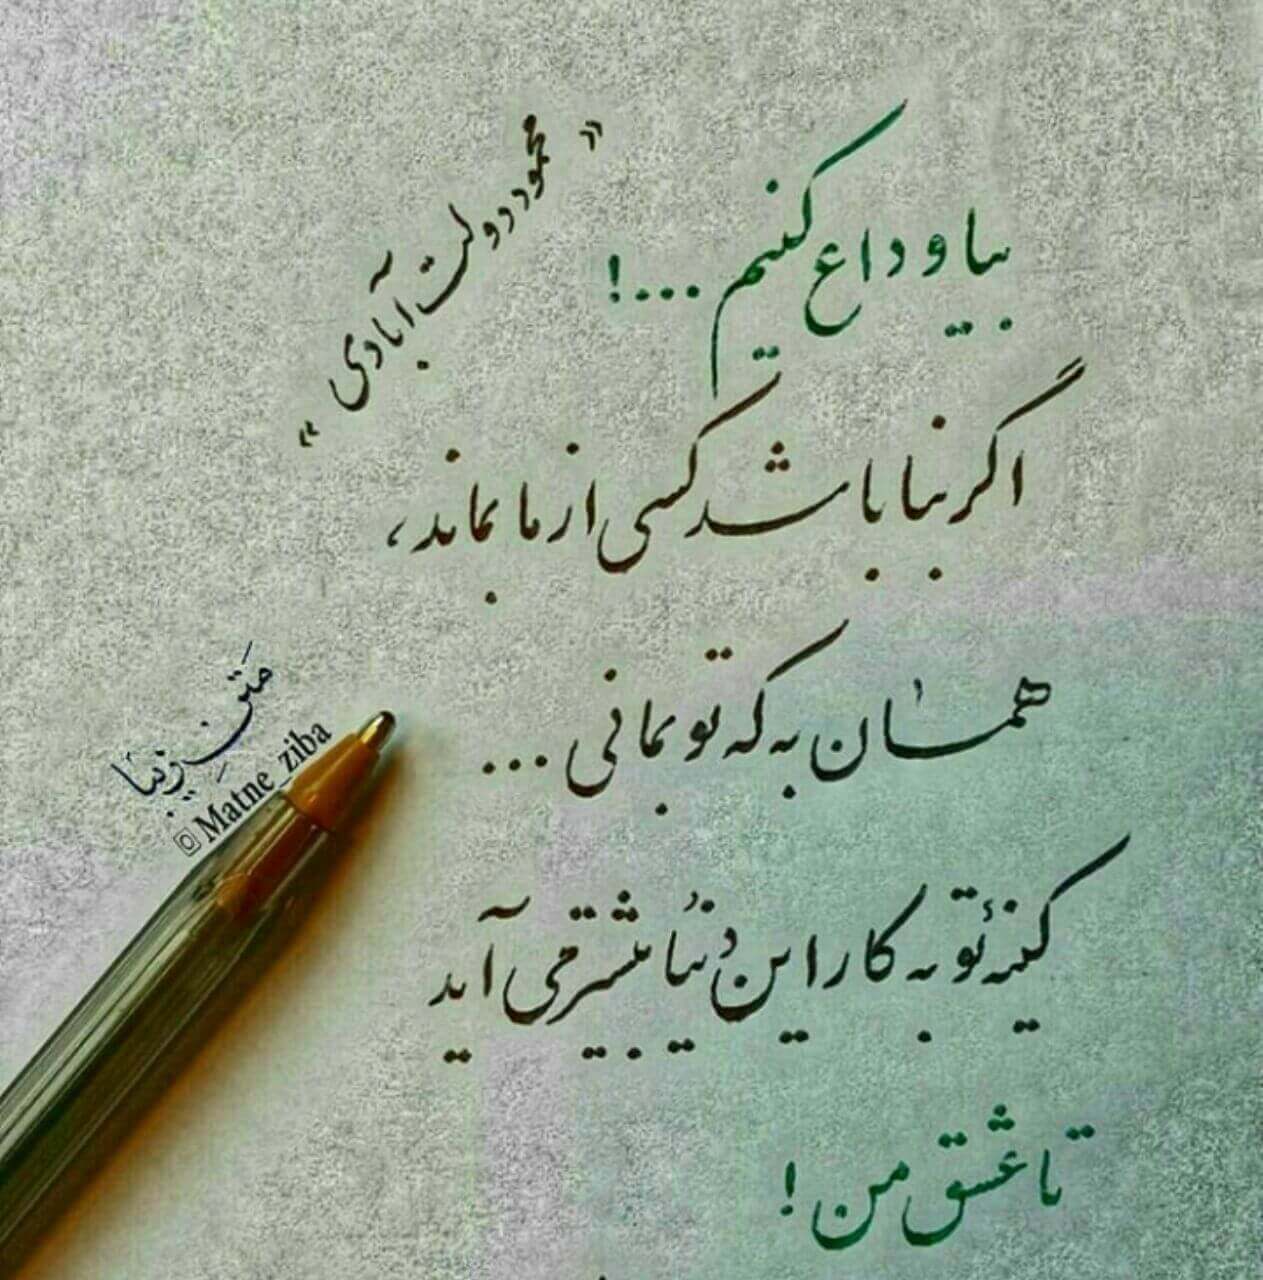 بیا وداع کنیم ...!
«محمود دولت‌آبادی»
اگر بنا باشد کسی از ما بماند،
همان به که تو بمانی ...
کینهٔ تو به کار این دنیا بیشتر می آید
تا عشق من !
متنِ زیبا
Matne_ziba